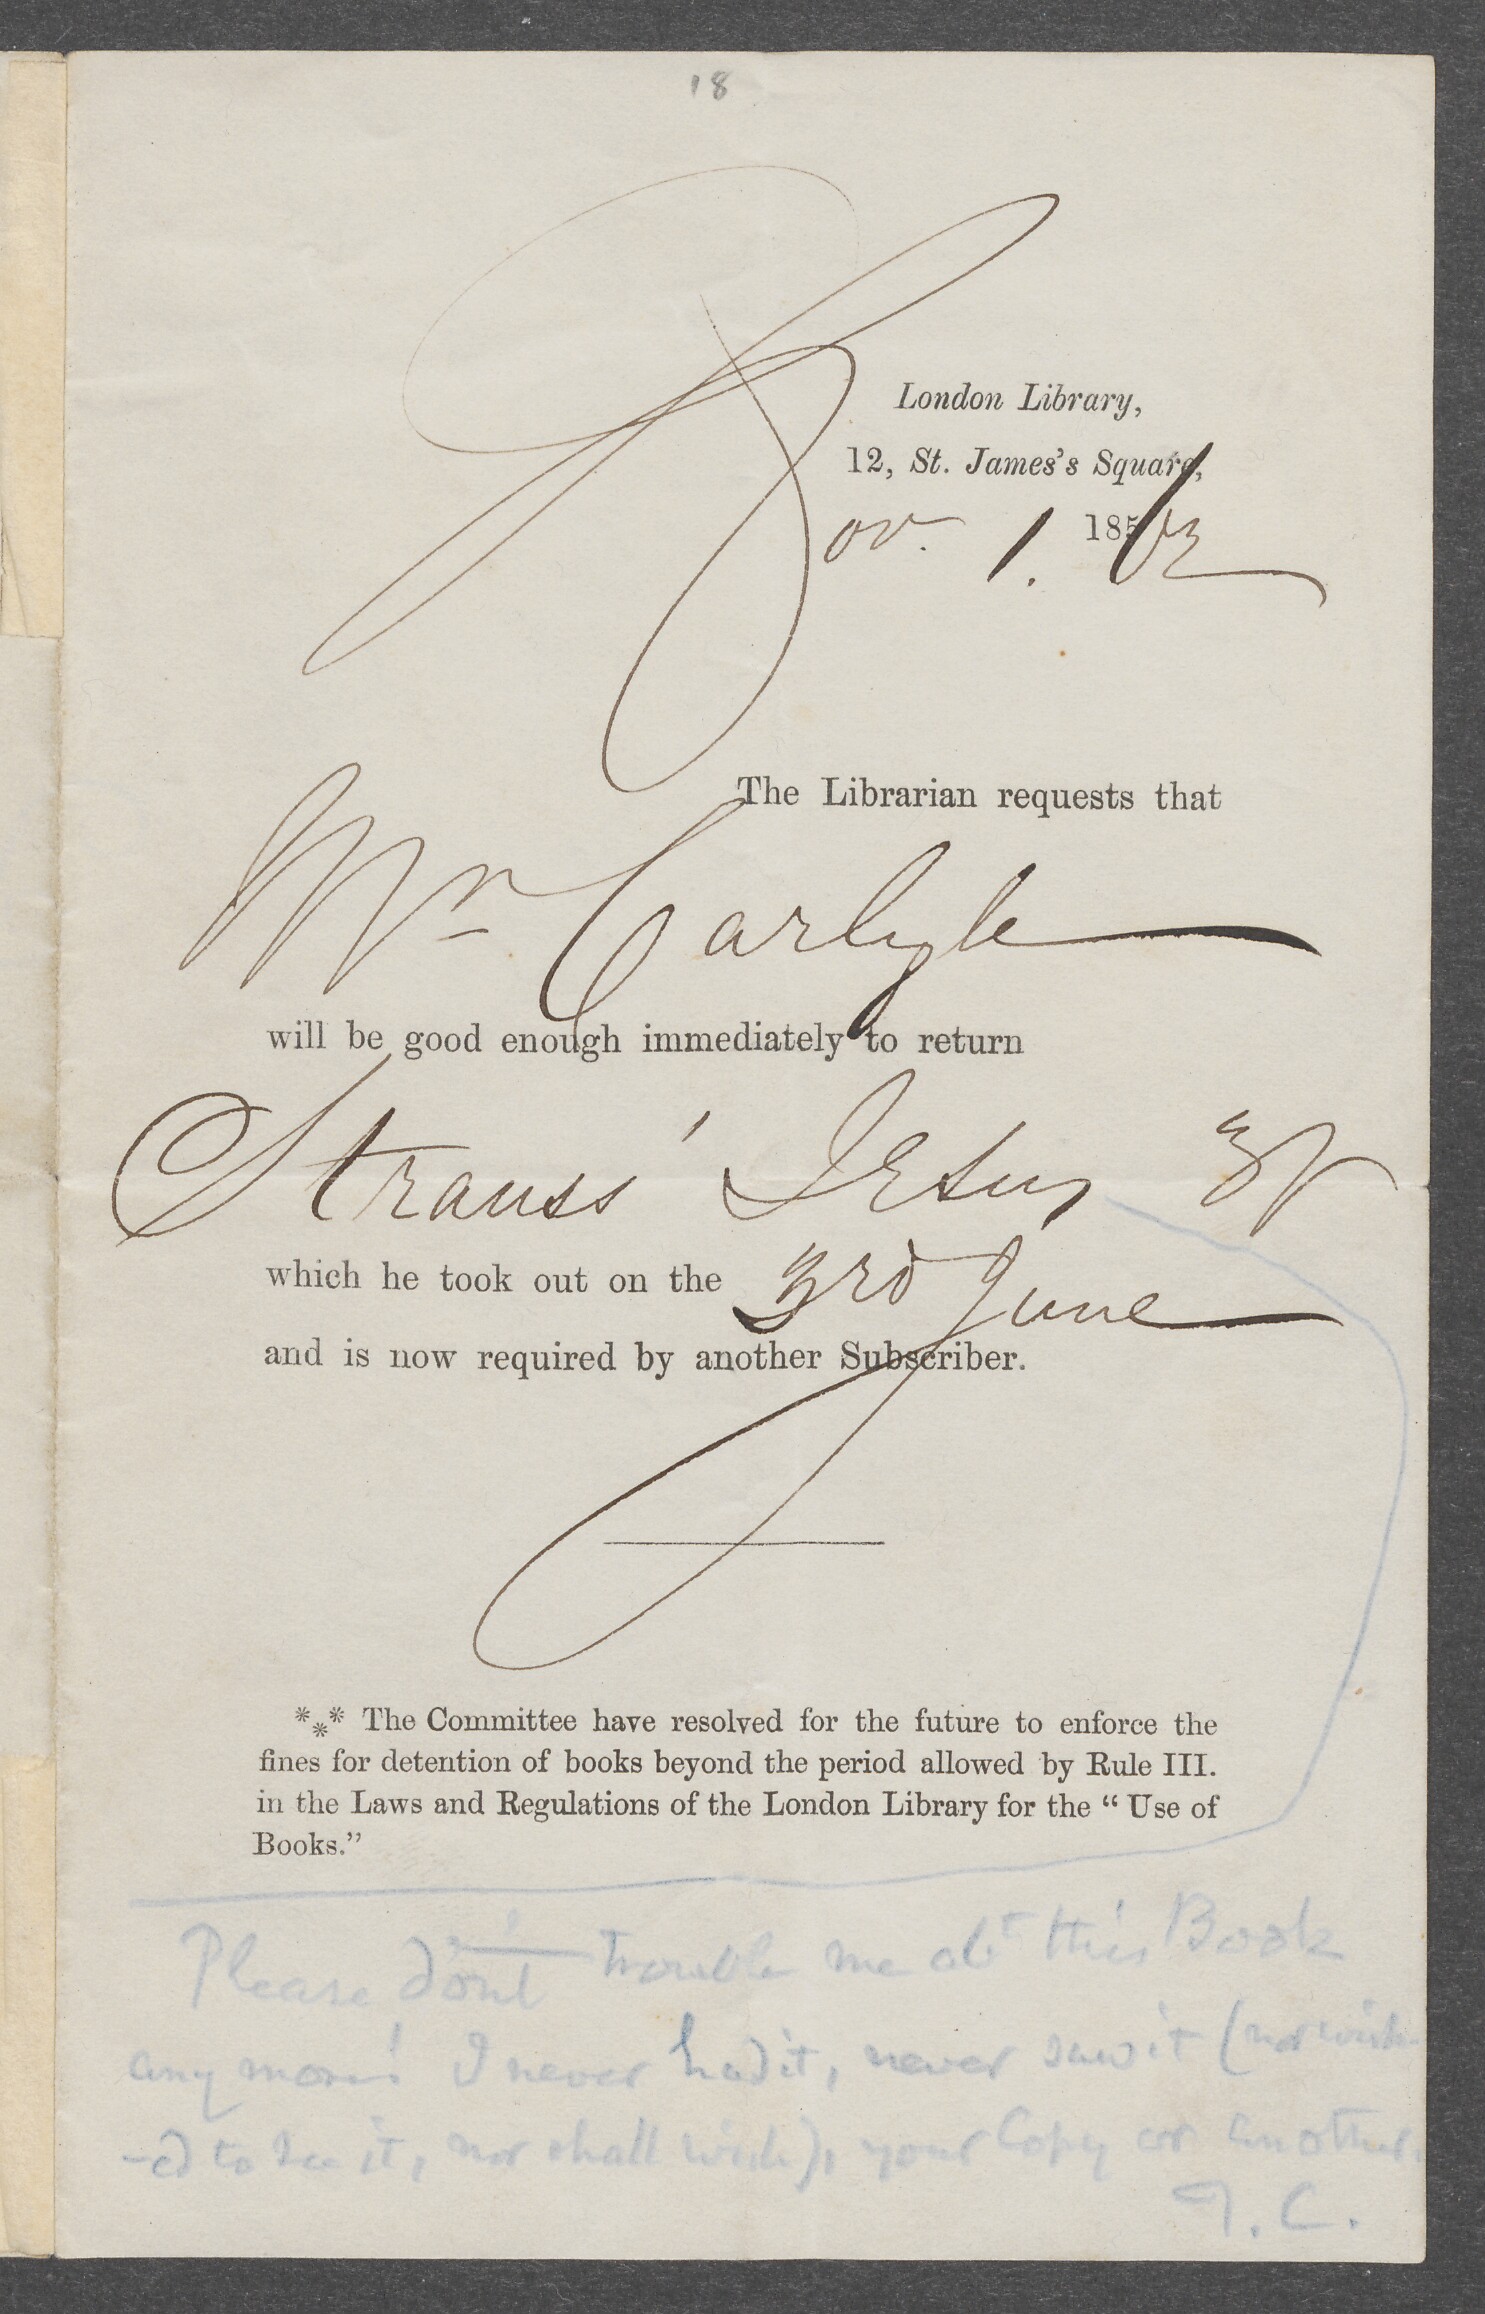 18
London Library,
12, St. James's Square,
Nov. 1. 1862
The Librarian requests that
Mr Carlyle
will be good enough immediately to return
Strauss' Jesus 3v
which he took out on the 3rd June
and is now required by another Subscriber.
*** The Committee have resolved for the future to enforce the
fines for detention of books beyond the period allowed by Rule III.
in the Laws and Regulations of the London Library for the “ Use of
Books.”
Please don't trouble me abt this Book
any more! I never had it, never saw it (nor wish-
-ed to see it, nor shall wish), your Copy or another.
T. C.